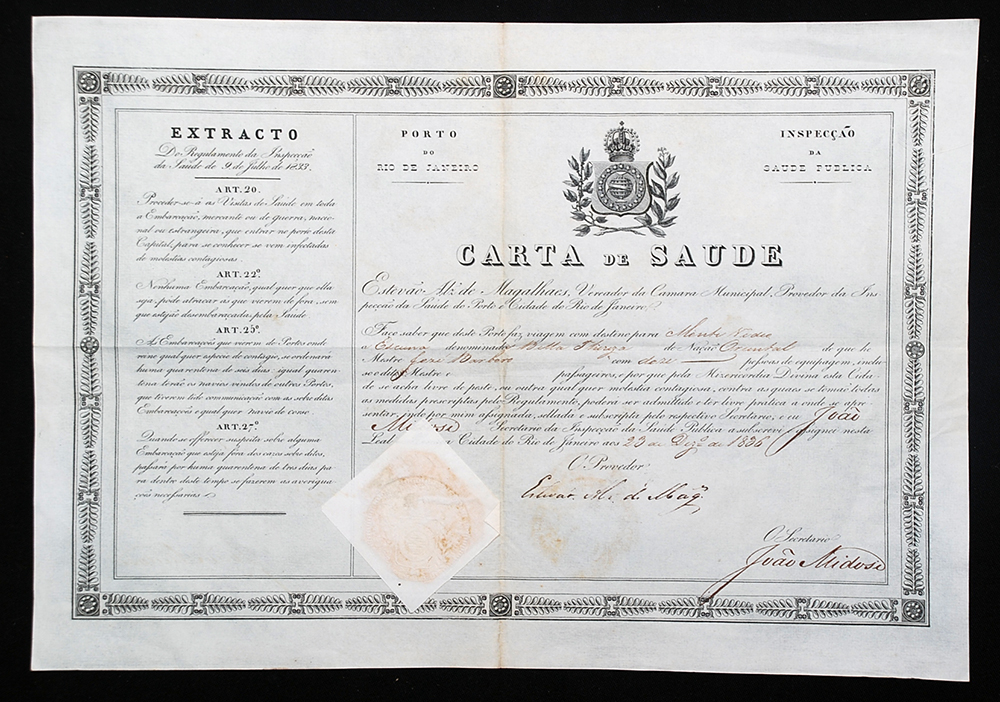 EXTRACTO
Do Regulamento da Inspecção
da Saude de 9 de Julho de 1833.
ART. 20.
Proceder-se-á as Visitas de Saude em toda
a Embarcação, mercante ou de guerra, nacio
nal ou estrangeira, que entrar no porto desta
Capital, para se conhecer se vem infectadas
de molestias contagiosas.
ART. 22º.
Nenhuma Embarcação, qual quer que ella
seja, pode atracar as que vierem de fora, sem
que estejão desembaraçadas, pela Saude
ART. 25º.
As Embarcações que vierem de Portos onde
reine qual quer especie de contagio, se ordenará
huma quarentena de seis dias: igual quaren
tena terão os navios vindos de outros Portos,
que tiverem tido communicação com as sobre ditas
Embarcações e qual quer navio de corso.
ART. 27º.
Quando se offerecer suspeita sobre alguma
Embarcação que esteja fora dos cazos sobre ditos,
passará por huma quarentena de tres dias pa
ra dentro deste tempo se fazerem as averigua
ções necessarias
PORTO
DO
RIO DE JANEIRO
INSPECÇÃO
DA
SAUDE PUBLICA
CARTA DE SAUDE
Estevão Alz. de Magalhaes, Vereador da Camara Municipal, Provedor da Ins
pecção da Saude do Porto e Cidade do Rio de Janeiro
Faço saber que deste Porto faz viagem com destino para Monte Vedeo
a Escuna denominada Bella de Nação Oriental de que he
Mestre José Barboza com doze pessoas de equipagem inclu
so o dito Mestre e passageiros, e por que pela Mizericordia Divina esta Cida
de se acha livre de peste, ou outra qual quer molestia contagiosa, contra as quaes se tomão todas
as medidas prescriptas pelo Regulamento, poderá ser admittido e ter livre prática a onde se apre
sentar, indo por mim assignada, sellada e subscripta pelo respectivo Secretario, e eu João
Midosi Secretario da Inspecção da Saude Publica a subscrevi e assignei nesta
Leal Cidade do Rio de Janeiro aos 23 de Dezº de 1836
O Provedor
Estevão Alz. de Magº
O Secretario
João Midosi